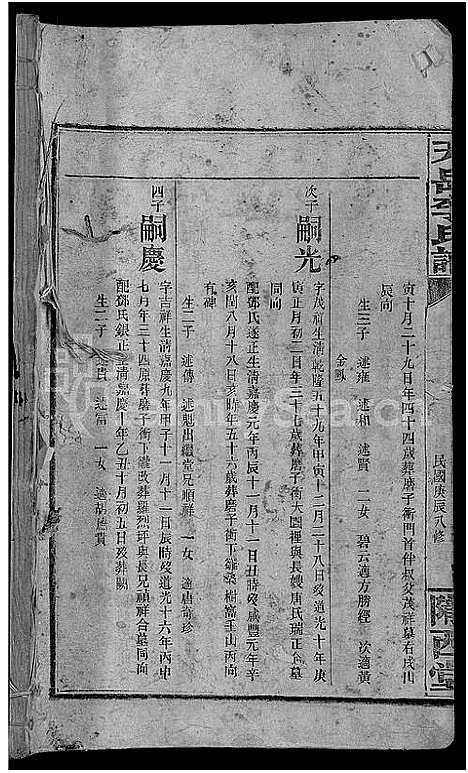 天岳李氏譜
民國庚辰八修
隴西堂
寅十月二十九日年四十四歲葬磨子衝門首伴叔父茂祥墓右戌山
辰向
生三子 述雍 述和 述賢 二女 碧云適方勝經 次適黃
金鳳
次子 嗣光 字茂祥生清乾隆五十九年甲寅十二月二十八日歿道光十年庚
寅正月初三日年三十七歲葬磨子衝大園裡與長嫂唐氏瑞正合墓
同向
配鄧氏遂正生清嘉慶元年丙辰十一月十一日丑時歿咸豐元年辛
亥閏八月十八日亥時年五十六歲葬磨子衝下雞 樹窩壬山丙向
有碑
生二子 述傳 述魁出繼堂兄順祥 一女 適唐奇珍
四子 嗣慶 字吉祥生清嘉慶九年甲子十一月十一日辰時歿道光十六年丙申
七月年三十四原葬磨子衝下雞改葬羅烈坪與長兄禎祥合墓同向
配鄧氏銀正生清嘉慶十年乙丑十月初五日歿葬闕
生二子 述貴 述福 一女 適胡 貴